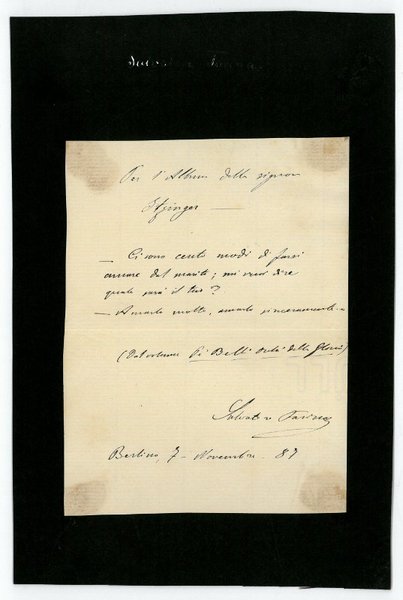 Salvatore Farina
Per l'Album della signora
Itzinger —
— Ci sono cento modi di farsi
amare dal marito; mi vuoi dire
quale sarà il tuo?
— Amarlo molto, amarlo sinceramente.
(Dal volume Pe' Belli Occhi della Gloria)
Salvatore Farina
Berlino, 7 - Novembre. 87